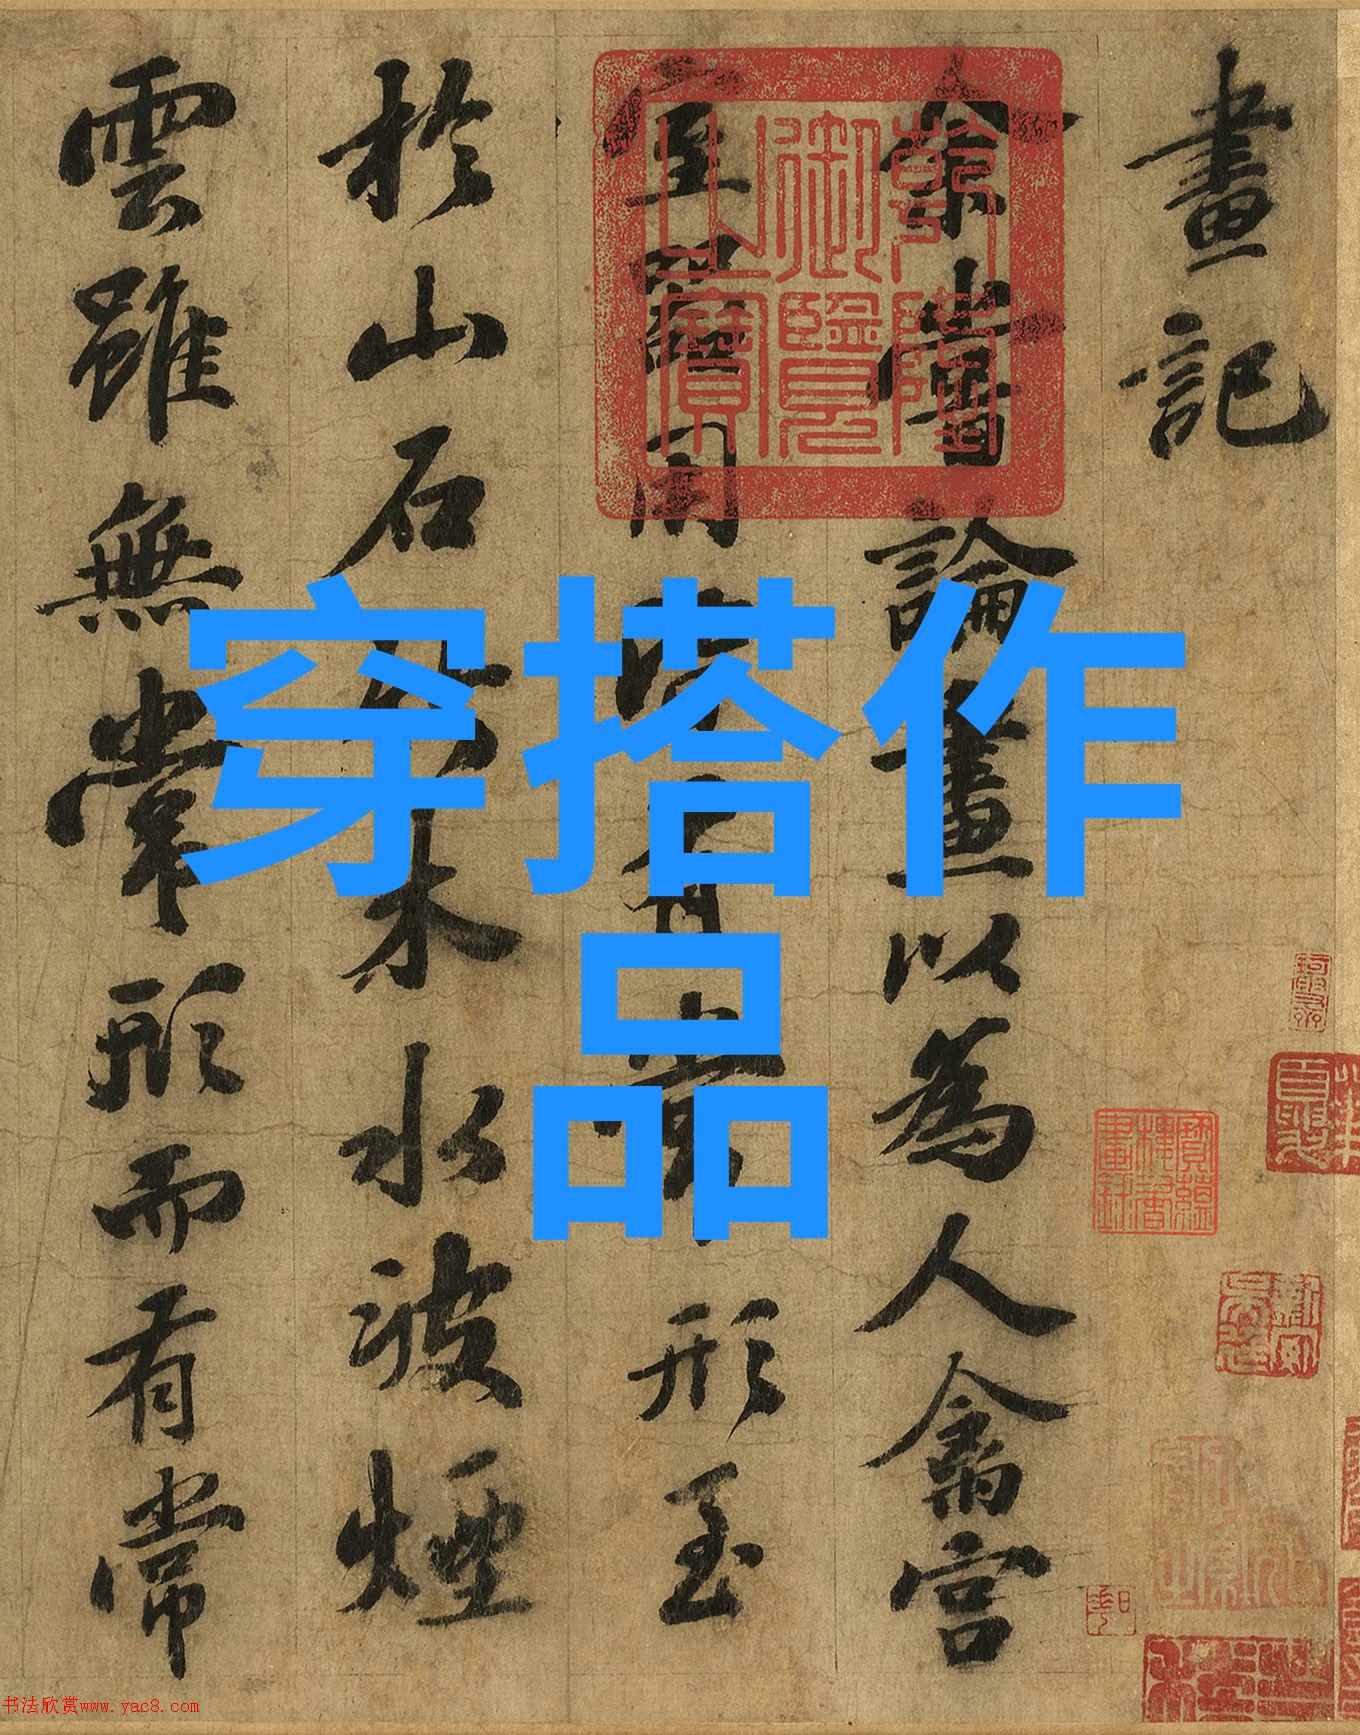 畫記
余嘗論畫以為人禽宮
室器用皆有常形至
於山石竹木水波煙
雲雖無常形而有常
乾隆
御覽
之寶
穿搭作
品
书法欣赏www.yac8.com